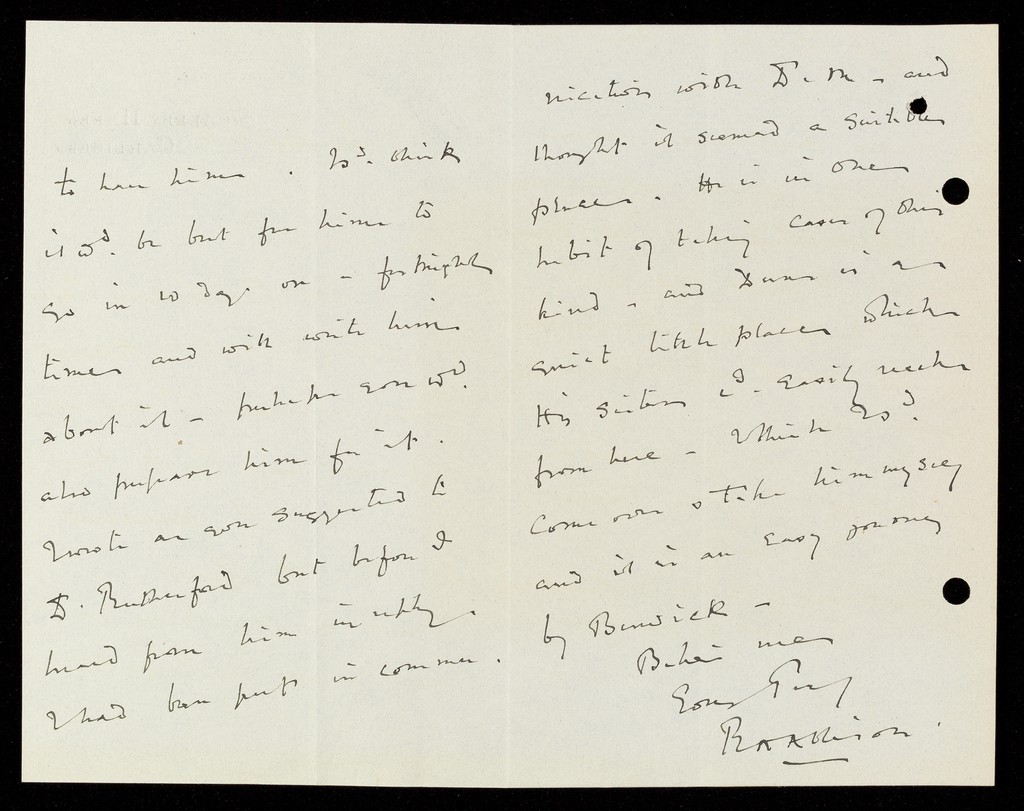 to have him. I shd. think
it wd. be best for him to
go in 10 days or a fortnights
time and will write him
about it – perhaps you wd.
also prepare him for it.
I wrote as you suggested to
Dr. Rutherford but before I
heard from him in reply.
I had been put in commu-
nication with Dr. M – and
thought it seemed a suitable
place. He is in the
habit of taking cases of this
kind – and Duns is a
quiet little place which
His sisters cd. easily reach
from here – I think I cd.
come over & take him myself
and it is an easy journey
by Berwick –
Believe me
Yours Truly